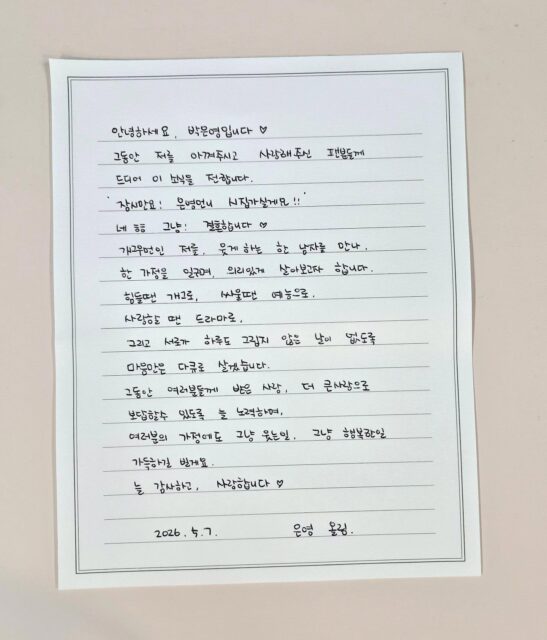 안녕하세요, 박은영입니다 ♡
그동안 저를 아껴주시고 사랑해주신 팬분들께
드디어 이 소식을 전합니다.
"잠시만요! 은영언니 시집가실게요!!"
네 ㅎㅎ 그냥! 결혼합니다 ♡
개그우먼인 저를, 웃게 하는 한 남자를 만나,
한 가정을 일구며, 의리있게 살아보고자 합니다.
힘들땐 개그로, 싸울땐 예능으로,
사랑할 땐 드라마로,
그리고 서로가 하루도 그립지 않은 날이 없도록
마음만은 다큐로 살겠습니다.
그동안 여러분들께 받은 사랑, 더 큰사랑으로
보답할수 있도록 늘 노력하며,
여러분의 가정에도 그냥 웃는일, 그냥 행복한일
가득하길 빌게요.
늘 감사하고, 사랑합니다 ♡
2026. 5. 7. 은영 올림.